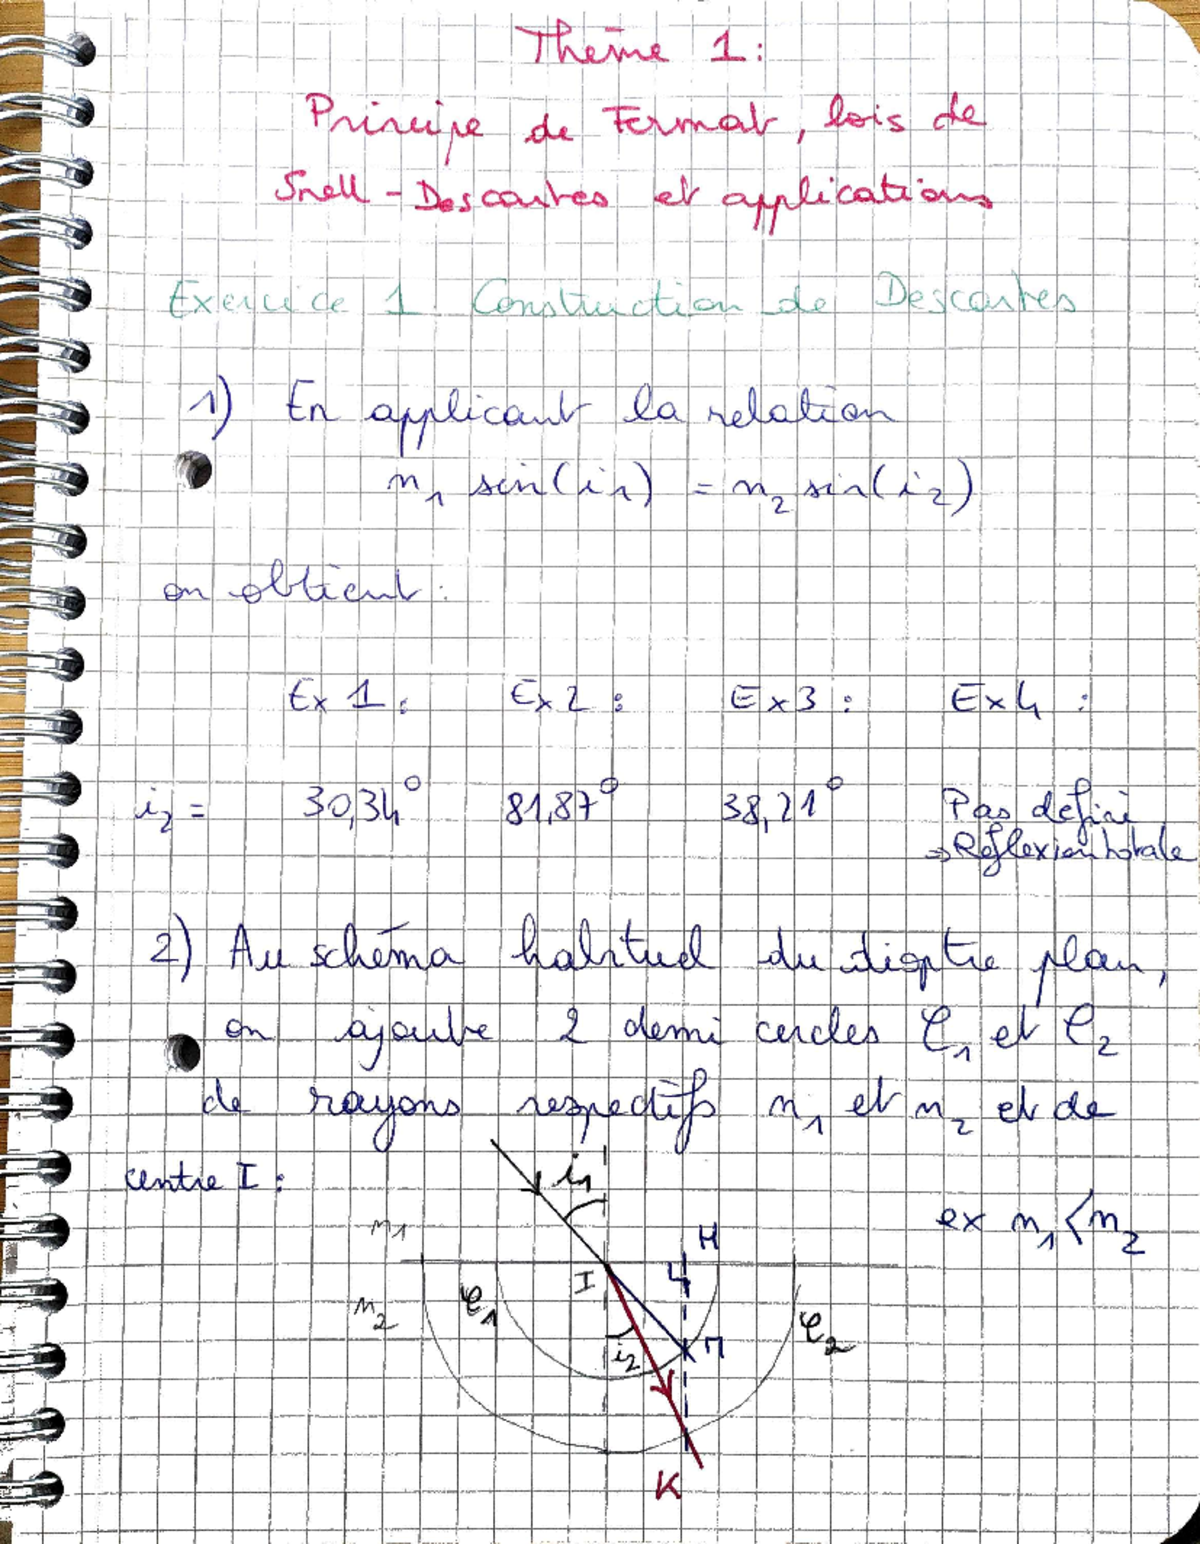 Thème 1:
Principe de Fermat, lois de
Snell-Descartes et applications
Exercice 1 Construction de Descartes
1) En applicant la relation
n₁ sin(i₁) = n₂ sin(i₂)
on obtient:
Ex 1: Ex 2: Ex3: Ex4:
i₂ = 30,34° 81,87° 38,21° Pas défini
⇒ Réflexion totale
2) Au schéma habituel du dioptre plan,
on ajoute 2 demi cercles C₁ et C₂
de rayons respectifs n₁ et n₂ et de
centre I:
i₁
ex n₁ < n₂
n₁ H
I
n₂ C₁ C₂
i₂ M
K